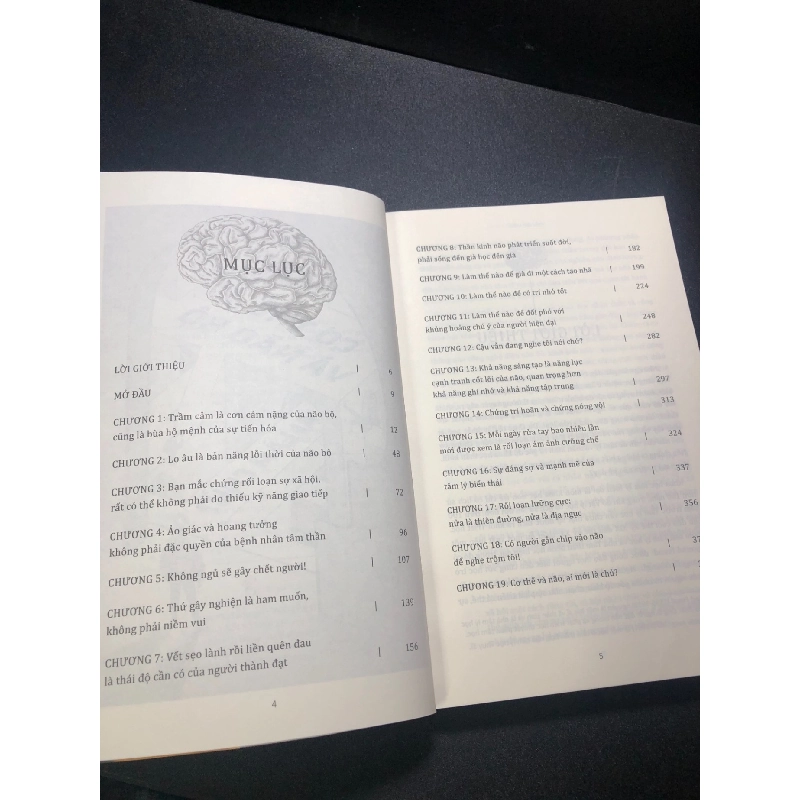 MỤC LỤC
LỜI GIỚI THIỆU | 6
MỞ ĐẦU | 9
CHƯƠNG 1: Trầm cảm là cơn cảm nặng của não bộ,
cũng là bùa hộ mệnh của sự tiến hóa | 12
CHƯƠNG 2: Lo âu là bản năng lỗi thời của não bộ | 43
CHƯƠNG 3: Bạn mắc chứng rối loạn sợ xã hội,
rất có thể không phải do thiếu kỹ năng giao tiếp | 72
CHƯƠNG 4: Ảo giác và hoang tưởng
không phải đặc quyền của bệnh nhân tâm thần | 96
CHƯƠNG 5: Không ngủ sẽ gây chết người! | 107
CHƯƠNG 6: Thứ gây nghiện là ham muốn,
không phải niềm vui | 135
CHƯƠNG 7: Vết sẹo lành rồi liền quên đau
là thái độ cần có của người thành đạt | 156
4
CHƯƠNG 8: Thần kinh não phát triển suốt đời,
phải sống đến già học đến già | 182
CHƯƠNG 9: Làm thế nào để già đi một cách tao nhã | 199
CHƯƠNG 10: Làm thế nào để có trí nhớ tốt | 224
CHƯƠNG 11: Làm thế nào để đối phó với
khủng hoảng chú ý của người hiện đại | 248
CHƯƠNG 12: Cậu vẫn đang nghe tôi nói chứ? | 282
CHƯƠNG 13: Khả năng sáng tạo là năng lực
cạnh tranh cốt lõi của não, quan trọng hơn
khả năng ghi nhớ và khả năng tập trung | 297
CHƯƠNG 14: Chứng trì hoãn và chứng nóng vội | 313
CHƯƠNG 15: Mỗi ngày rửa tay bao nhiêu lần
mới được xem là rối loạn ám ảnh cưỡng chế | 324
CHƯƠNG 16: Sự đáng sợ và mạnh mẽ của
tâm lý biến thái | 337
CHƯƠNG 17: Rối loạn lưỡng cực:
nửa là thiên đường, nửa là địa ngục | 356
CHƯƠNG 18: Có người gắn chip vào não
để nghe trộm tôi! | 37
CHƯƠNG 19: Cơ thể và não, ai mới là chủ? |
5